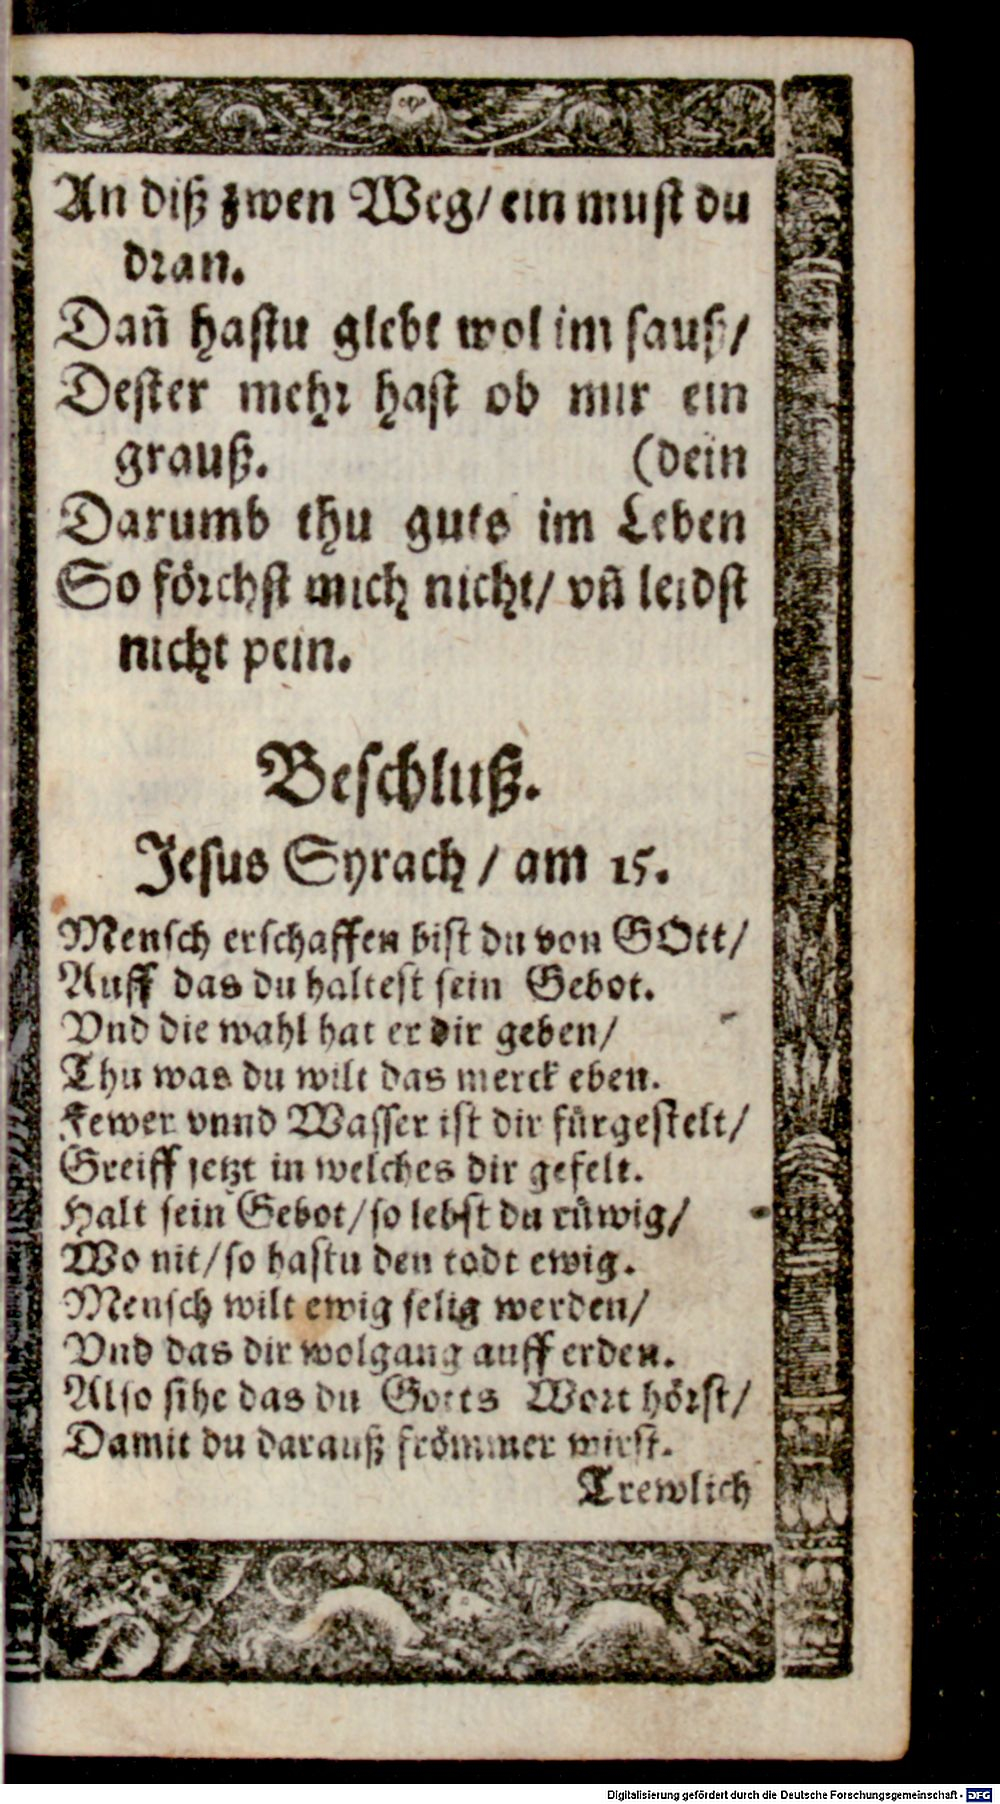 An diß zwen Weg/ ein must du
dran.
Dañ hastu glebt wol im sauß/
Dester mehr hast ob mir ein
grauß. (dein
Darumb thu guts im Leben
So förchst mich nicht/ vñ leidst
nicht pein.
Beschluß.
Jesus Syrach / am 15.
Mensch erschaffen bist du von GOtt/
Auff das du haltest sein Gebot.
Vnd die wahl hat er dir geben/
Thu was du wilt das merck eben.
Fewer vnnd Wasser ist dir fürgestelt/
Greiff jetzt in welches dir gefelt.
Halt sein Gebot/ so lebst du rüwig/
Wo nit/ so hastu den todt ewig.
Mensch wilt ewig selig werden/
Vnd das dir wolgang auff erden.
Also sihe das du Gotts Wort hörst/
Damit du darauß frömmer wirst.
Trewlich
Digitalisierung gefördert durch die Deutsche Forschungsgemeinschaft - DFG